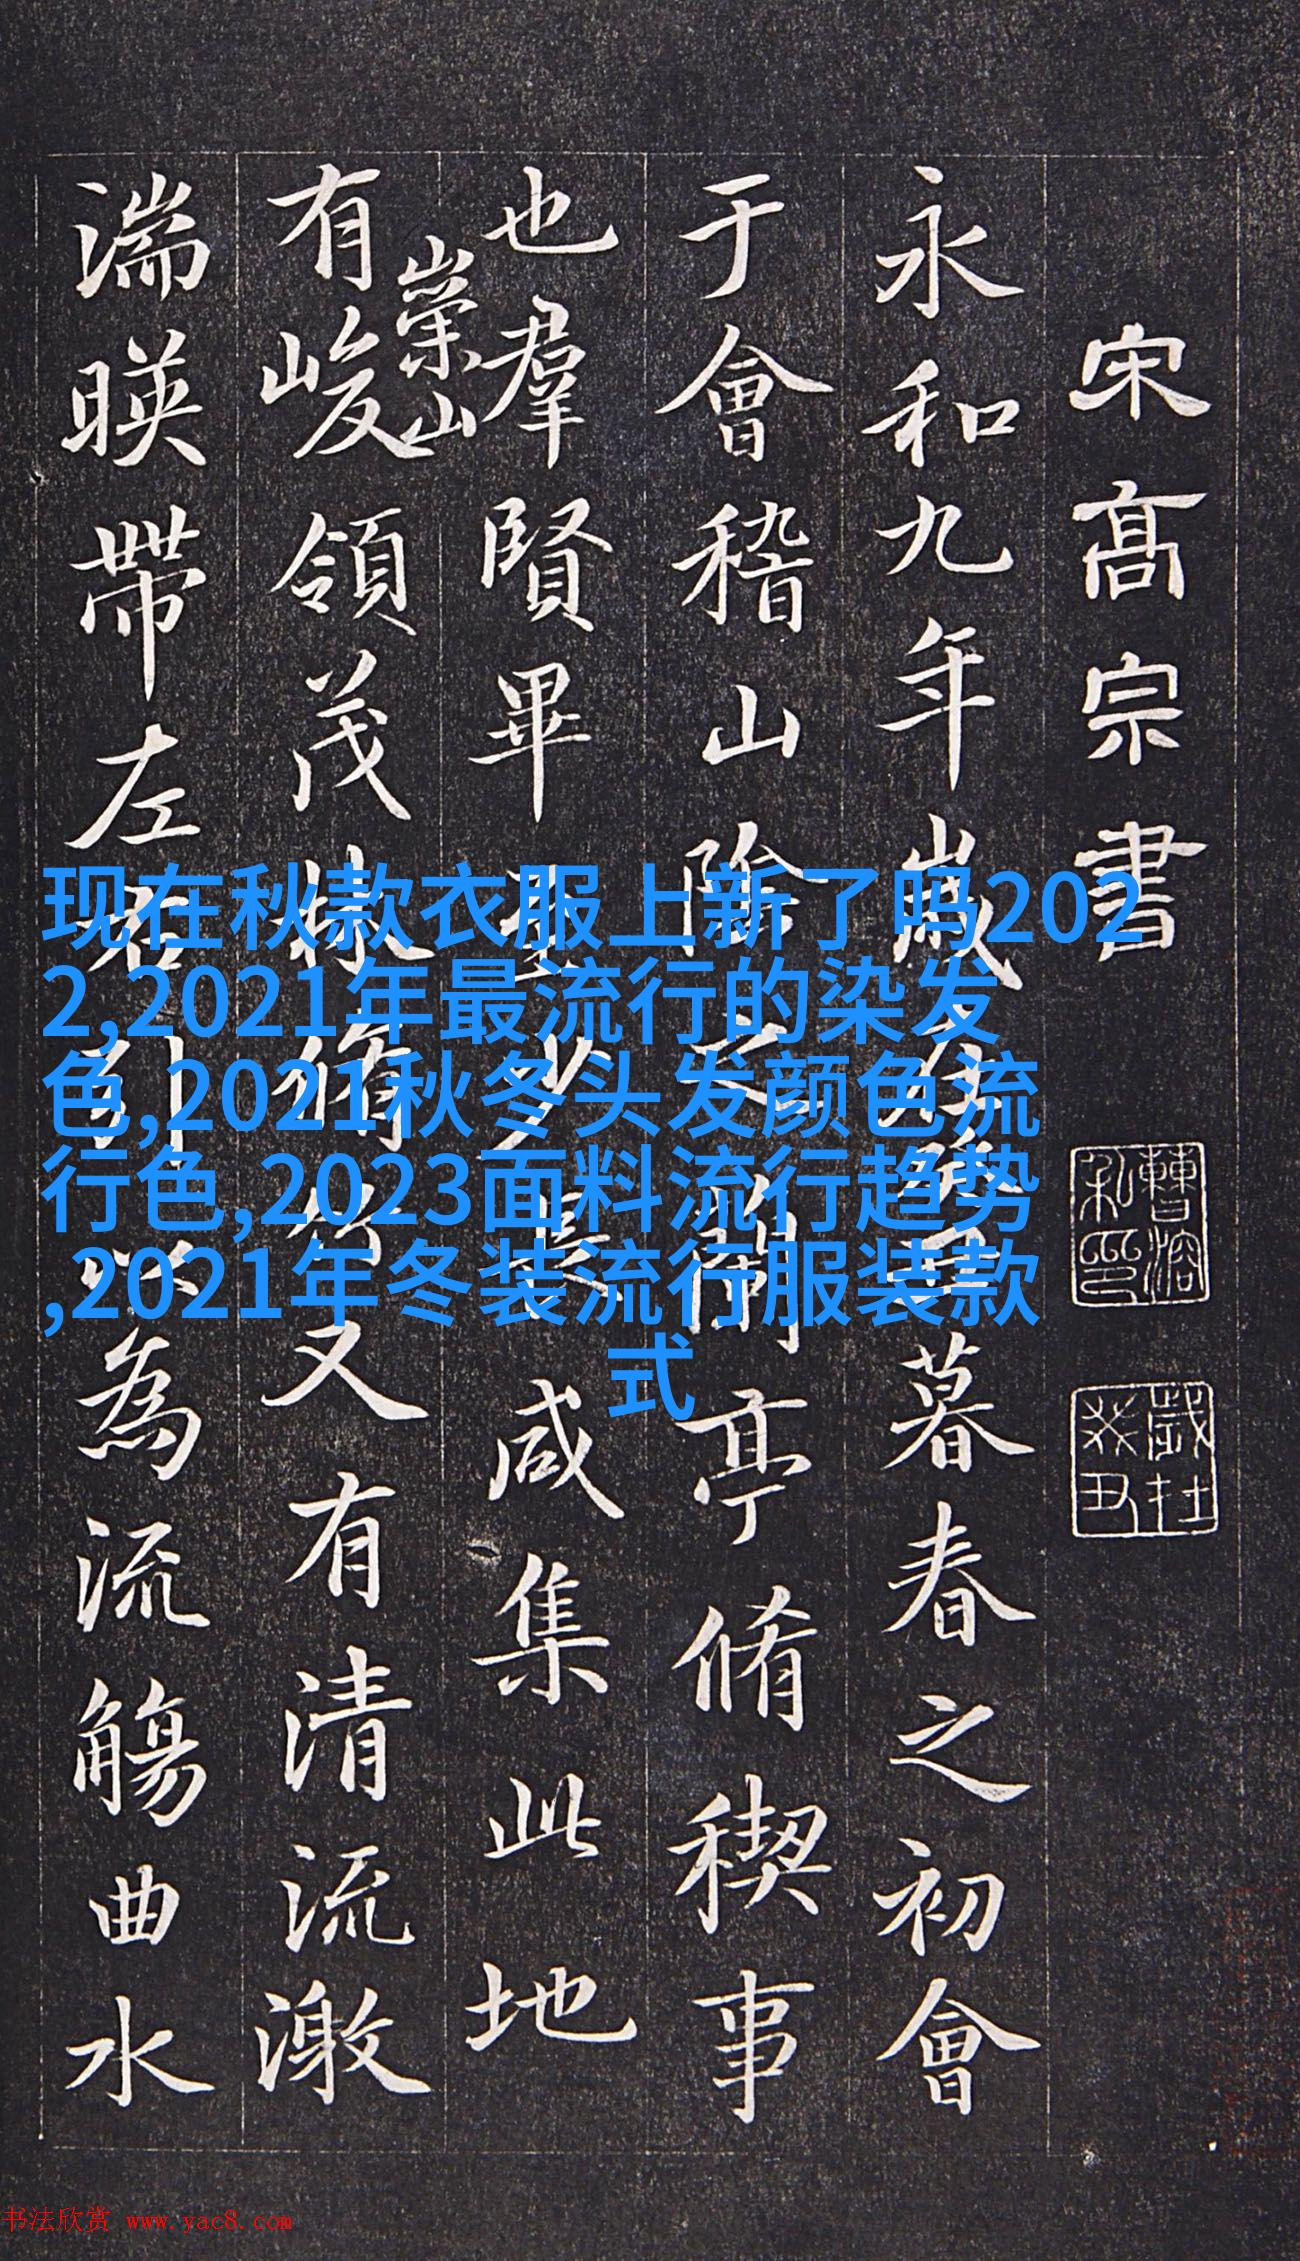 宋髙宗書
曹溶私印
永和九年歲在癸丑暮春之初會
于會稽山陰之蘭亭脩稧事
也羣賢畢至少長咸集此地
崇山
有峻領茂林脩竹又有清流激
湍暎帶左右引以為流觴曲水
现在秋款衣服上新了吗202
2,2021年最流行的染发
色,2021秋冬头发颜色流
行色,2023面料流行趋势
,2021年冬装流行服装款
式
书法欣赏 www.yac8.com